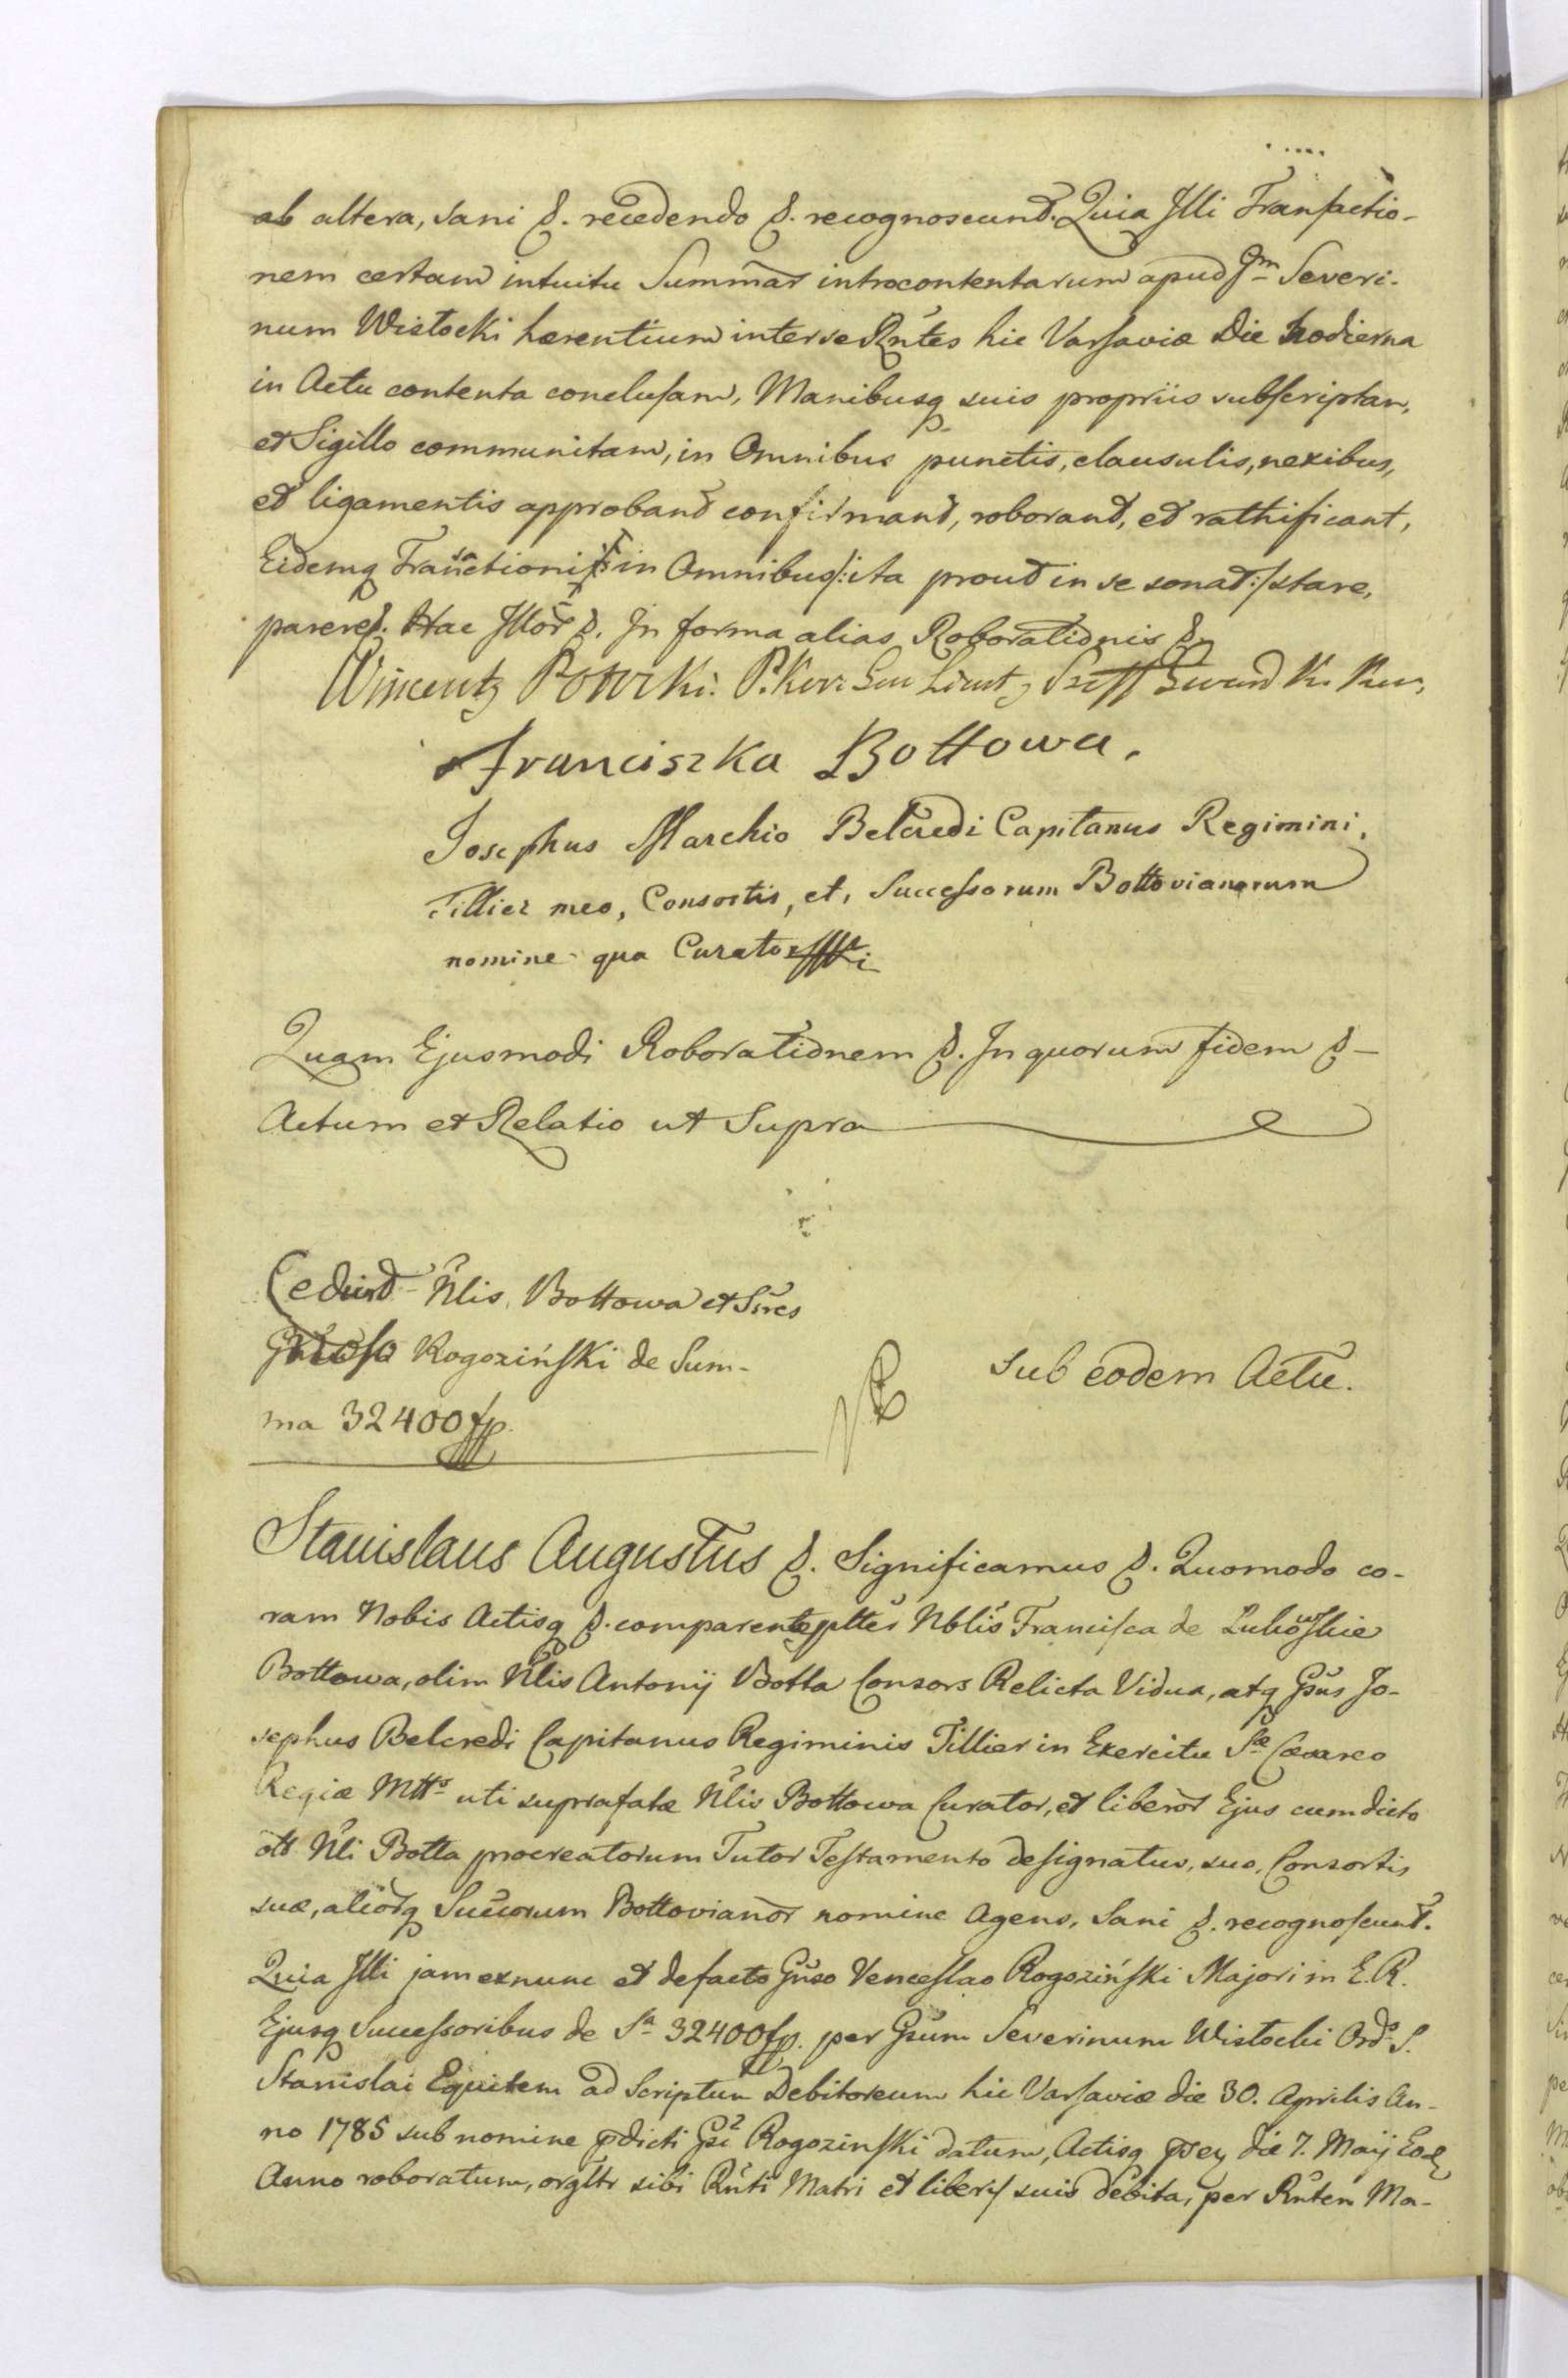 ab altera, sani &. recedendo &. recognoscunt. Quia Illi Transactio-
nem certam intuitu Summar introcontentarum apud Gm Severi-
num Wistocki hærentium inter se Rntes hic Varsaviæ Die hodierna
in Actu contenta conclusam, Manibusq suis propriis subscriptam,
et Sigillo communitam, in Omnibus punctis, clausulis, nexibus,
et ligamentis approbant confirmant, roborant, et rathificant,
Eidemq Transactioni in Omnibus /:ita prout in se sonat:/ stare,
parere &. Hac Illor &. In forma alias Roborationis &.
Wincenty
Franciszka Bottowa.
Josephus Marchio Belcredi Capitanus Regimini,
Tillier meo, Consortis, et, Successorum Bottovianorum
nomine qua Curator
Quam Ejusmodi Roborationem &. In quorum fidem &-
Actum et Relatio ut Supra
Cedunt Nlis, Bottowa et Sres
Rogoziński de Sum-
ma 32400 fp.
Sub eodem Actu.
Stanislaus Augustus &. Significamus &. Quomodo co-
ram Nobis Actisq &. comparentes pltes Nblis Francisca de
Bottowa, olim Nlis Antonij Botta Consors Relicta Vidua, atq Gsus Jo-
sephus Belcredi Capitanus Regiminis Tillier in Exercitu Sæ Cæsareo
Regiæ Mtts uti suprafatæ Nlis Bottowa Curator, et liberor Ejus cum dicto
olt Nli Botta procreatorum Tutor Testamento designatus, suo, Consortis
suæ, aliorq Succorum Bottovianor nomine Agens, Sani &. recognoscunt.
Quia Illi jam exnunc et defacto Gnso Venceslao Rogoziński Majori in E. R.
Ejusq Successoribus de Sa 32400 fp. per Gsum Severinum Wistocki Ords S.
Stanislai Equitem ad Scriptum Debitoreum hic Varsaviæ die 30. Aprilis An-
no 1785 sub nomine pdicti Gsi Rogozinski datum, Actisq die 7. Maij Eod
Anno roboratum, orgltr sibi Rnti Matri et liberis suis debita, per Rntem Ma-